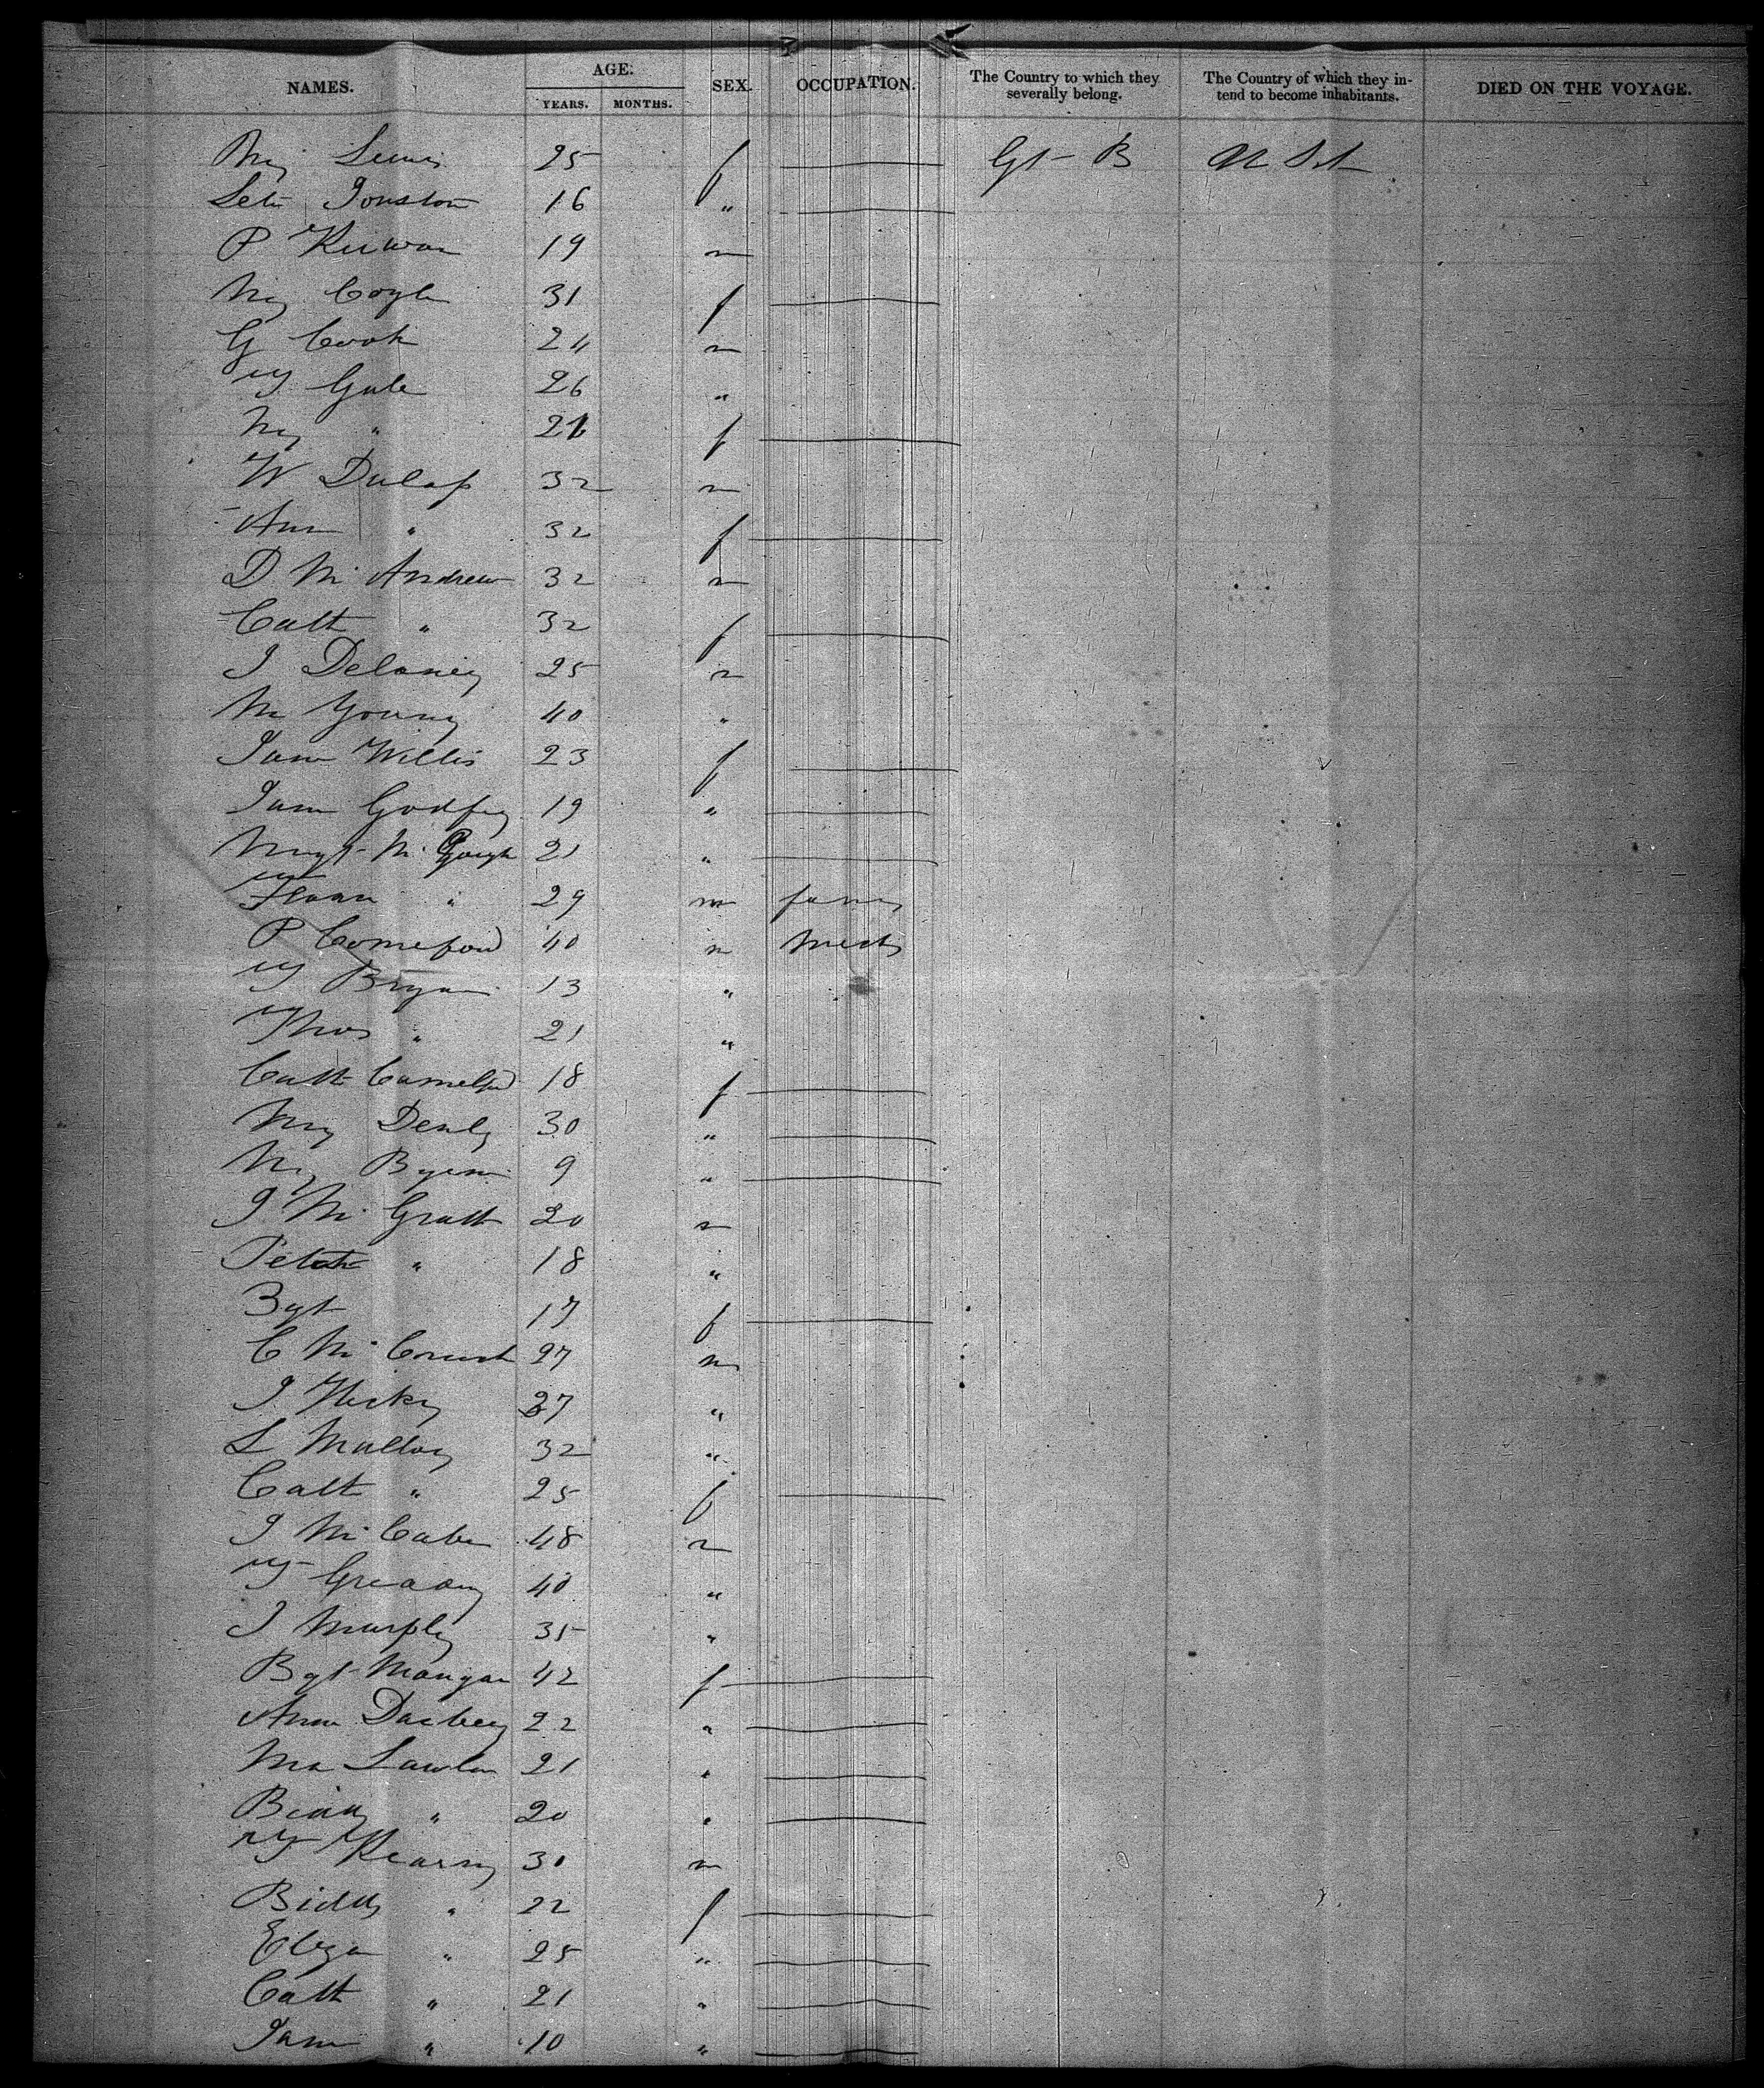 NAMES. AGE. YEARS. MONTHS. SEX. OCCUPATION. The Country to which they severally belong. The Country of which they intend to become inhabitants. DIED ON THE VOYAGE.
My Lewis 25 f Gt B U St
Jonston 16 "
P Kirwan 19 m
My Coyle 31 f
G Cook 24 m
Gale 26 "
My " 21 f
W Dulap 32 m
Ann " 32 f
D Mc Andrew 32 m
Cath " 32 f
J Delaney 25 m
M Young 40 "
Jane Willis 23 f
Jane Godfrey 19 "
Mgt Mc Gough 21 "
" 29 m farm
P Comeford 40 m Mech
Bryan 13 "
Thos " 21 "
Cath 18 f
My 30 "
My 9 "
J Mc Grath 20 m
" 18 "
Bgt 17 f
C Mc 27 m
J Hicky 27 "
L Malloy 32 "
Cath " 25 f
J Mc Cabe 48 m
40 "
J Murphy 35 "
Bgt Mangan 42 f
Ann Darbey 22 "
Ma Lawlor 21 "
Biddy " 20 "
Kearny 30 m
Biddy " 22 f
Eliza " 25 "
Cath " 21 "
Jane " 10 "